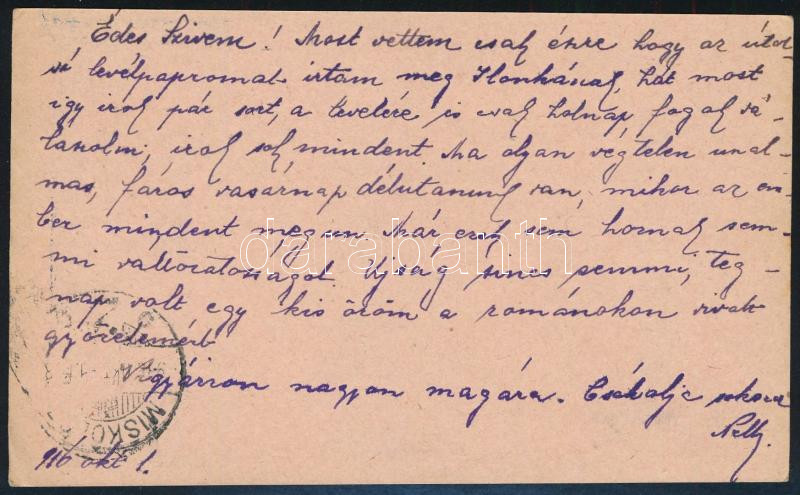 Édes Szivem! Most vettem csak észre hogy az útol-
só levélpapromat irtam meg Ilonkának, hát most
igy irok pár sort, a levelére is csak holnap fogok vá-
laszolni, irok sok mindent. Ma olyan végtelen unal-
mas, fáros vasárnap délutanunk van, mikor az em-
ber mindent megun. Már ezek sem hoznak sem-
mi változatosságot. Ujság sincs semmi, teg-
nap volt egy kis öröm a románokon
győzelemért
Vigyázzon nagyon magára. Csókolja sokszor
Nelly.
916 okt 1.
MISKOL
darabanth